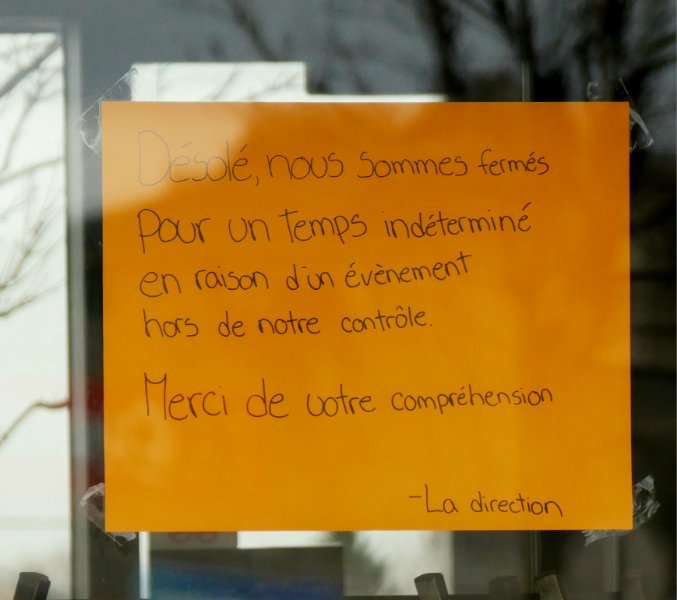 Désolé, nous sommes fermés
pour un temps indéterminé
en raison d'un évènement
hors de notre contrôle.
Merci de votre compréhension
-La direction